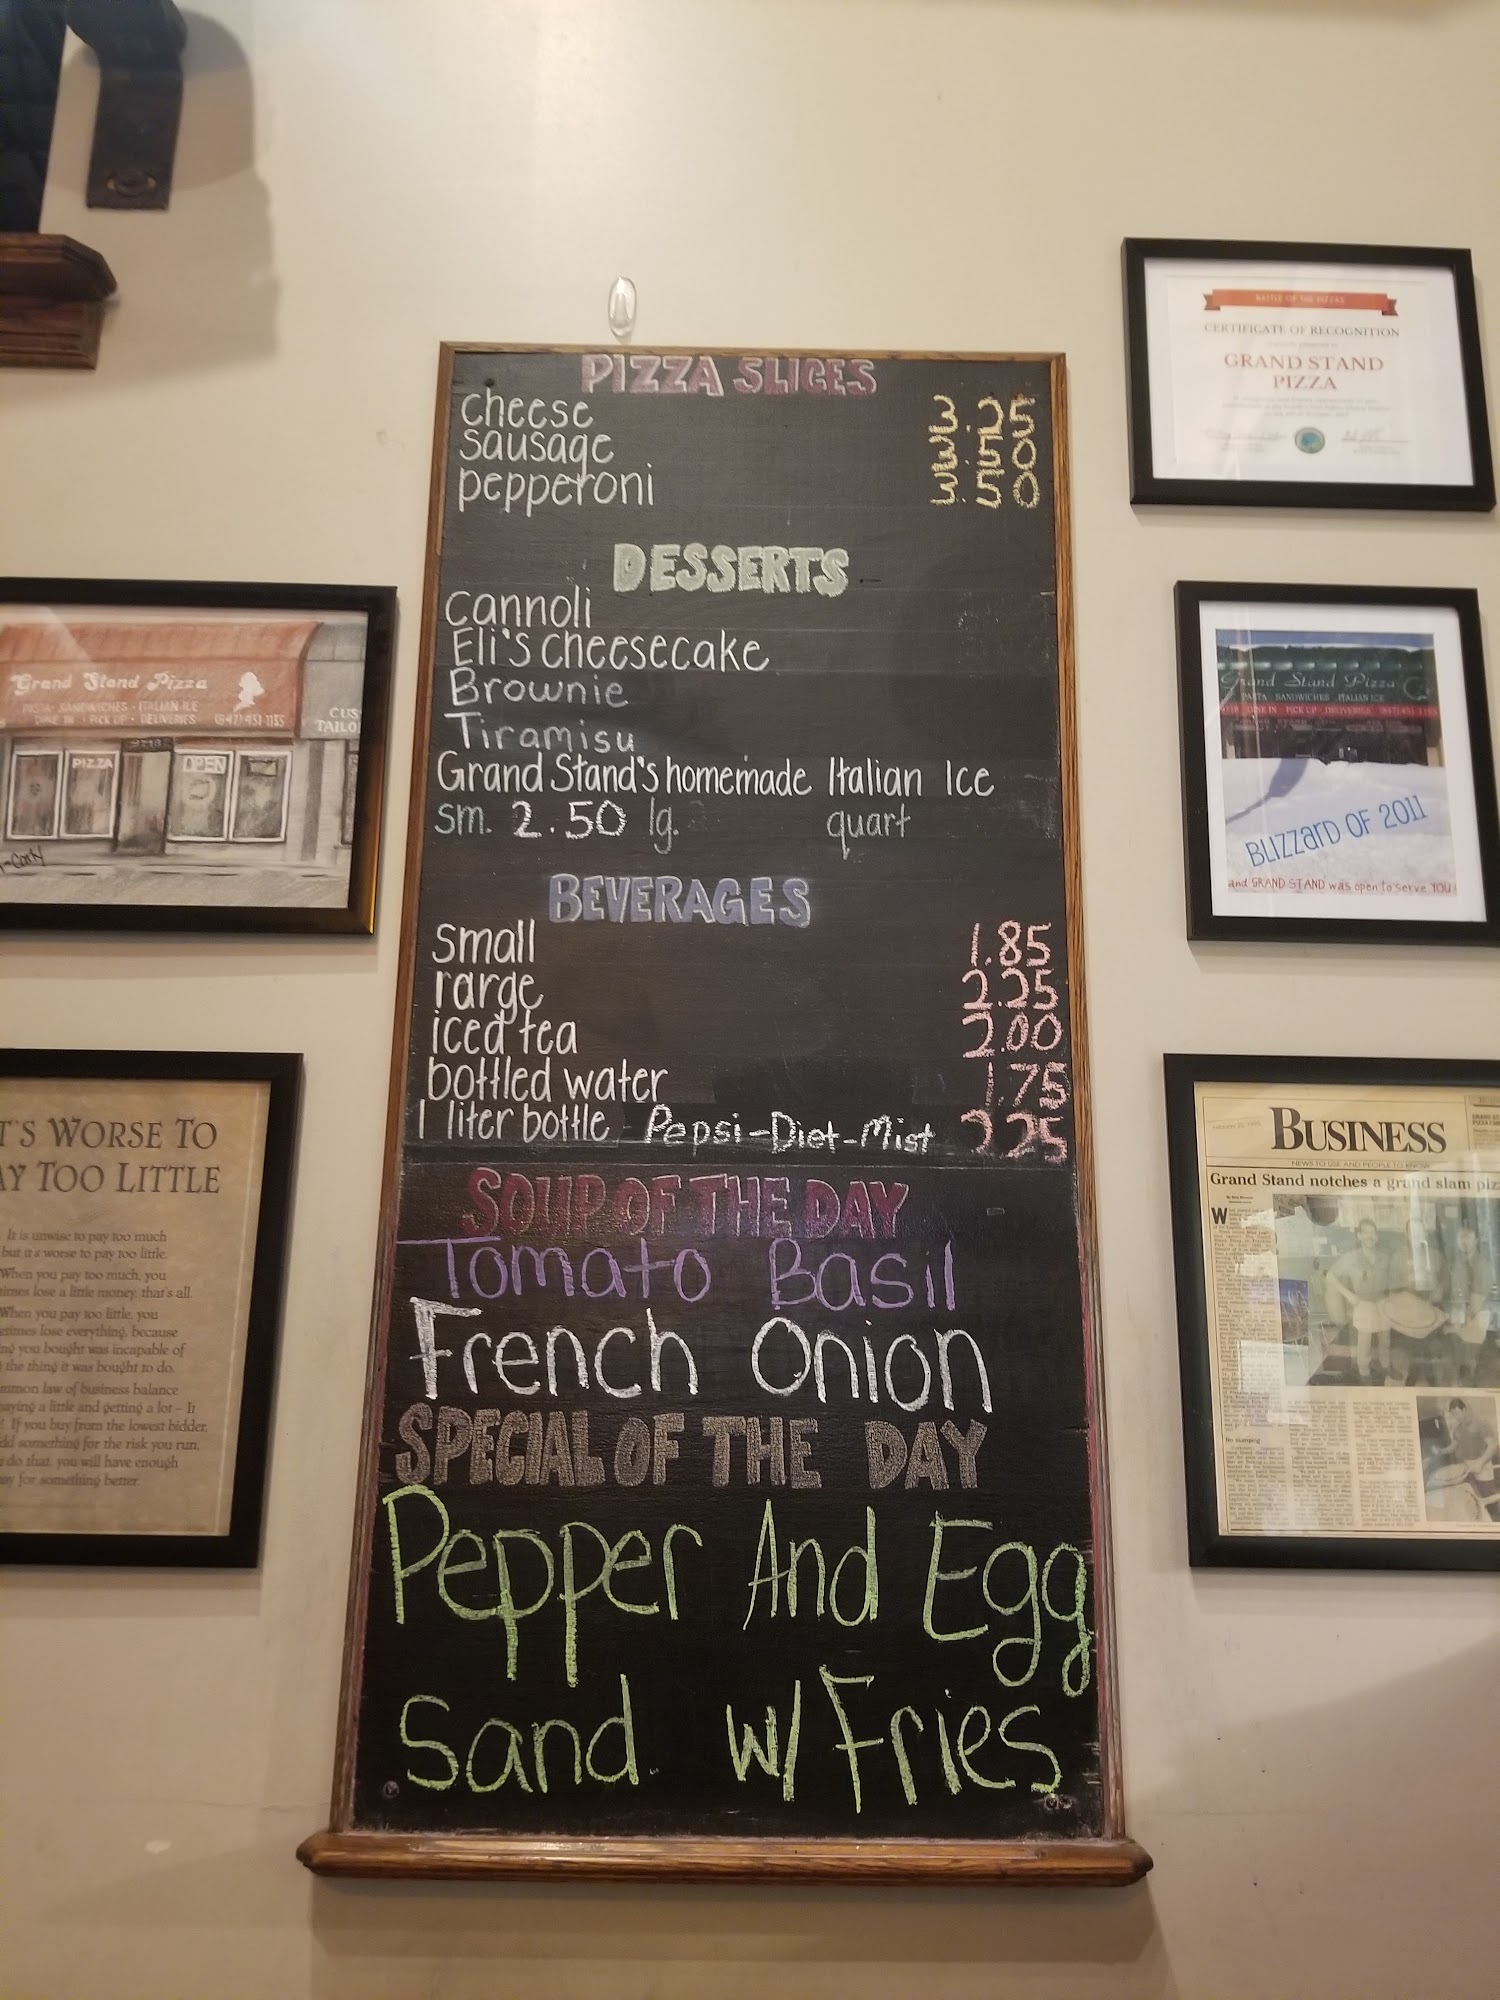 PIZZA SLICES
cheese 3.25
sausage 3.50
pepperoni 3.50
DESSERTS
cannoli
Eli's cheesecake
Brownie
Tiramisu
Grand Stand's homemade Italian Ice
sm. 2.50 lg. quart
BEVERAGES
small 1.85
rarge 2.25
iced tea 2.00
bottled water 1.75
1 liter bottle Pepsi-Diet-Mist 2.25
SOUP OF THE DAY
Tomato Basil
French Onion
SPECIAL OF THE DAY
Pepper And Egg
Sand. w/ Fries
Grand Stand Pizza
PASTA · SANDWICHES · ITALIAN ICE
DINE IN · PICK UP · DELIVERIES (847) 451-1135
CUS
TAILO
PIZZA
OPEN
T'S WORSE TO
AY TOO LITTLE
It is unwise to pay too much
but it's worse to pay too little.
When you pay too much, you
times lose a little money, that's all.
When you pay too little, you
etimes lose everything, because
ng you bought was incapable of
the thing it was bought to do.
mmon law of business balance
aying a little and getting a lot – It
If you buy from the lowest bidder,
dd something for the risk you run,
do that, you will have enough
ay for something better.
BATTLE OF THE PIZZAS
CERTIFICATE OF RECOGNITION
GRAND STAND
PIZZA
Grand Stand Pizza
PASTA · SANDWICHES · ITALIAN ICE
DINE IN · PICK UP · DELIVERIES
BLIZZARD OF 2011
and GRAND STAND was open to serve YOU!
BUSINESS
NEWS TO USE AND PEOPLE TO KNOW
Grand Stand notches a grand slam piz
No slumping